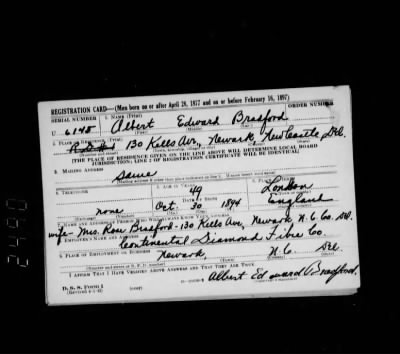 REGISTRATION CARD—(Men born on or after April 28, 1877 and on or before February 16, 1897)
SERIAL NUMBER 1. NAME (Print) ORDER NUMBER
U 6145 Albert Edward Bradford
(First) (Middle) (Last)
2. PLACE OF RESIDENCE (Print)
130 Kells Ave, Newark, New Castle, Del.
(Number and street) (Town) (County) (State)
[THE PLACE OF RESIDENCE GIVEN ON THE LINE ABOVE WILL DETERMINE LOCAL BOARD
JURISDICTION; LINE 2 OF REGISTRATION CERTIFICATE WILL BE IDENTICAL]
3. MAILING ADDRESS
Same
4. TELEPHONE 5. AGE IN YEARS
49 London
DATE OF BIRTH
none Oct. 30 1894 England
7. NAME AND ADDRESS OF PERSON WHO WILL ALWAYS KNOW YOUR ADDRESS
wife - Mrs. Rose Bradford - 130 Kells Ave, Newark N. C. Co. Del.
8. EMPLOYER'S NAME AND ADDRESS
Continental Diamond Fibre Co.
9. PLACE OF EMPLOYMENT OR BUSINESS
Newark, N. C. Del.
(Number and street or R. F. D. number) (Town) (County) (State)
I AFFIRM THAT I HAVE VERIFIED ABOVE ANSWERS AND THAT THEY ARE TRUE.
D. S. S. Form 1
Albert Edward Bradford.